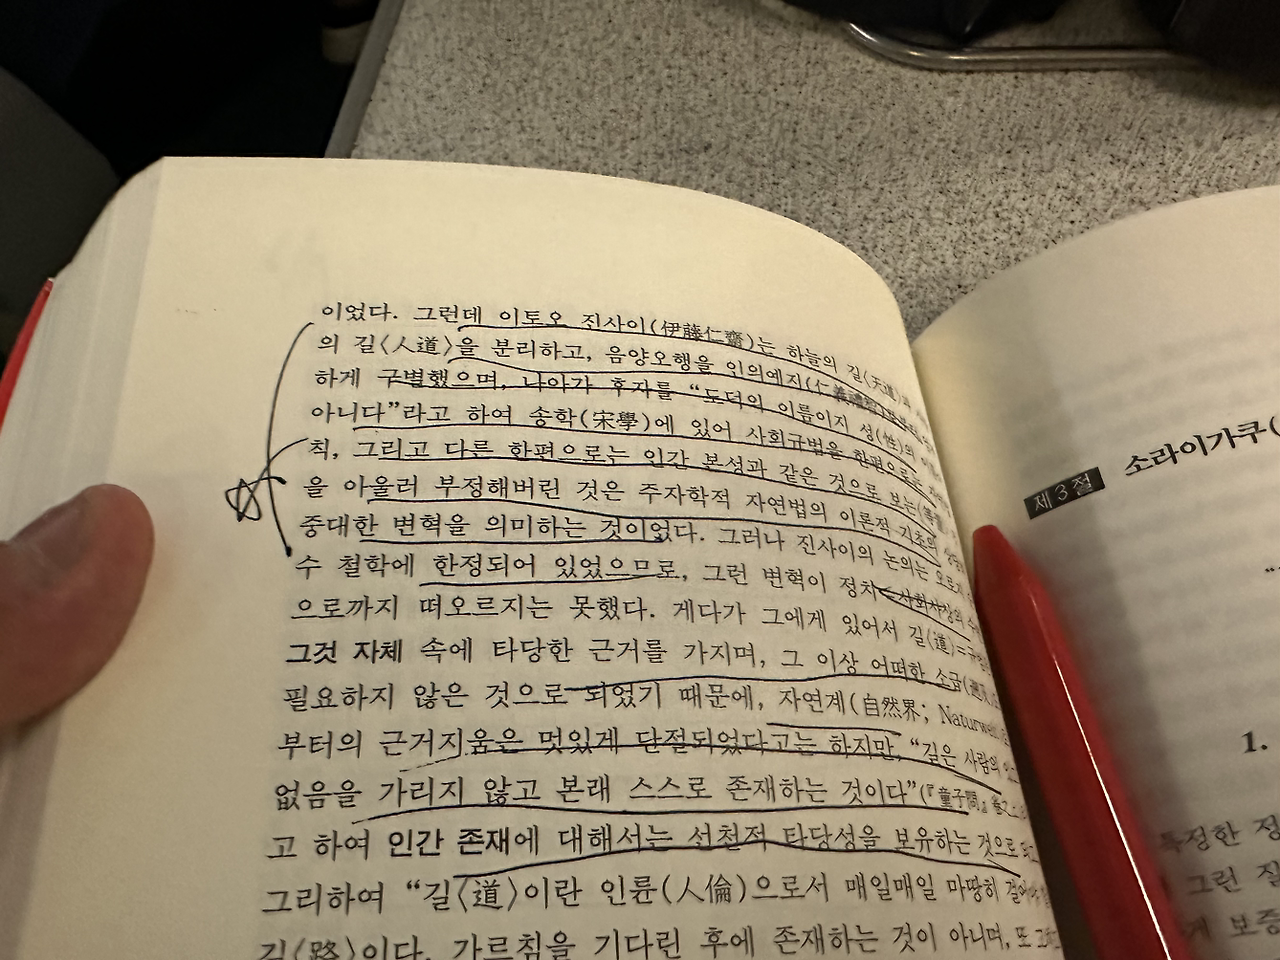 이었다. 그런데 이토오 진사이(伊藤仁齋)는 하늘의 길(天道)과
의 길〈人道〉을 분리하고, 음양오행을 인의예지(仁義禮智)
하게 구별했으며, 나아가 후자를 “도덕의 이름이지 성(性)의
아니다”라고 하여 송학(宋學)에 있어 사회규범을 한편으로는
칙, 그리고 다른 한편으로는 인간 본성과 같은 것으로 보는
을 아울러 부정해버린 것은 주자학적 자연법의 이론적 기초의
중대한 변혁을 의미하는 것이었다. 그러나 진사이의 논의는 오로지
수 철학에 한정되어 있었으므로, 그런 변혁이 정치
으로까지 떠오르지는 못했다. 게다가 그에게 있어서 길(道)=규범
그것 자체 속에 타당한 근거를 가지며, 그 이상 어떠한 소급
필요하지 않은 것으로 되었기 때문에, 자연계(自然界; Naturwelt
부터의 근거지움은 멋있게 단절되었다고는 하지만, “길은 사람의
없음을 가리지 않고 본래 스스로 존재하는 것이다”(『童子問』
고 하여 인간 존재에 대해서는 선천적 타당성을 보유하는 것으로
그리하여 “길〈道〉이란 인륜(人倫)으로서 매일매일 마땅히
길〈路〉이다. 가르침을 기다린 후에 존재하는 것이 아니며, 또
제3절 소라이가쿠(
1.
특정한
그런
게 보증